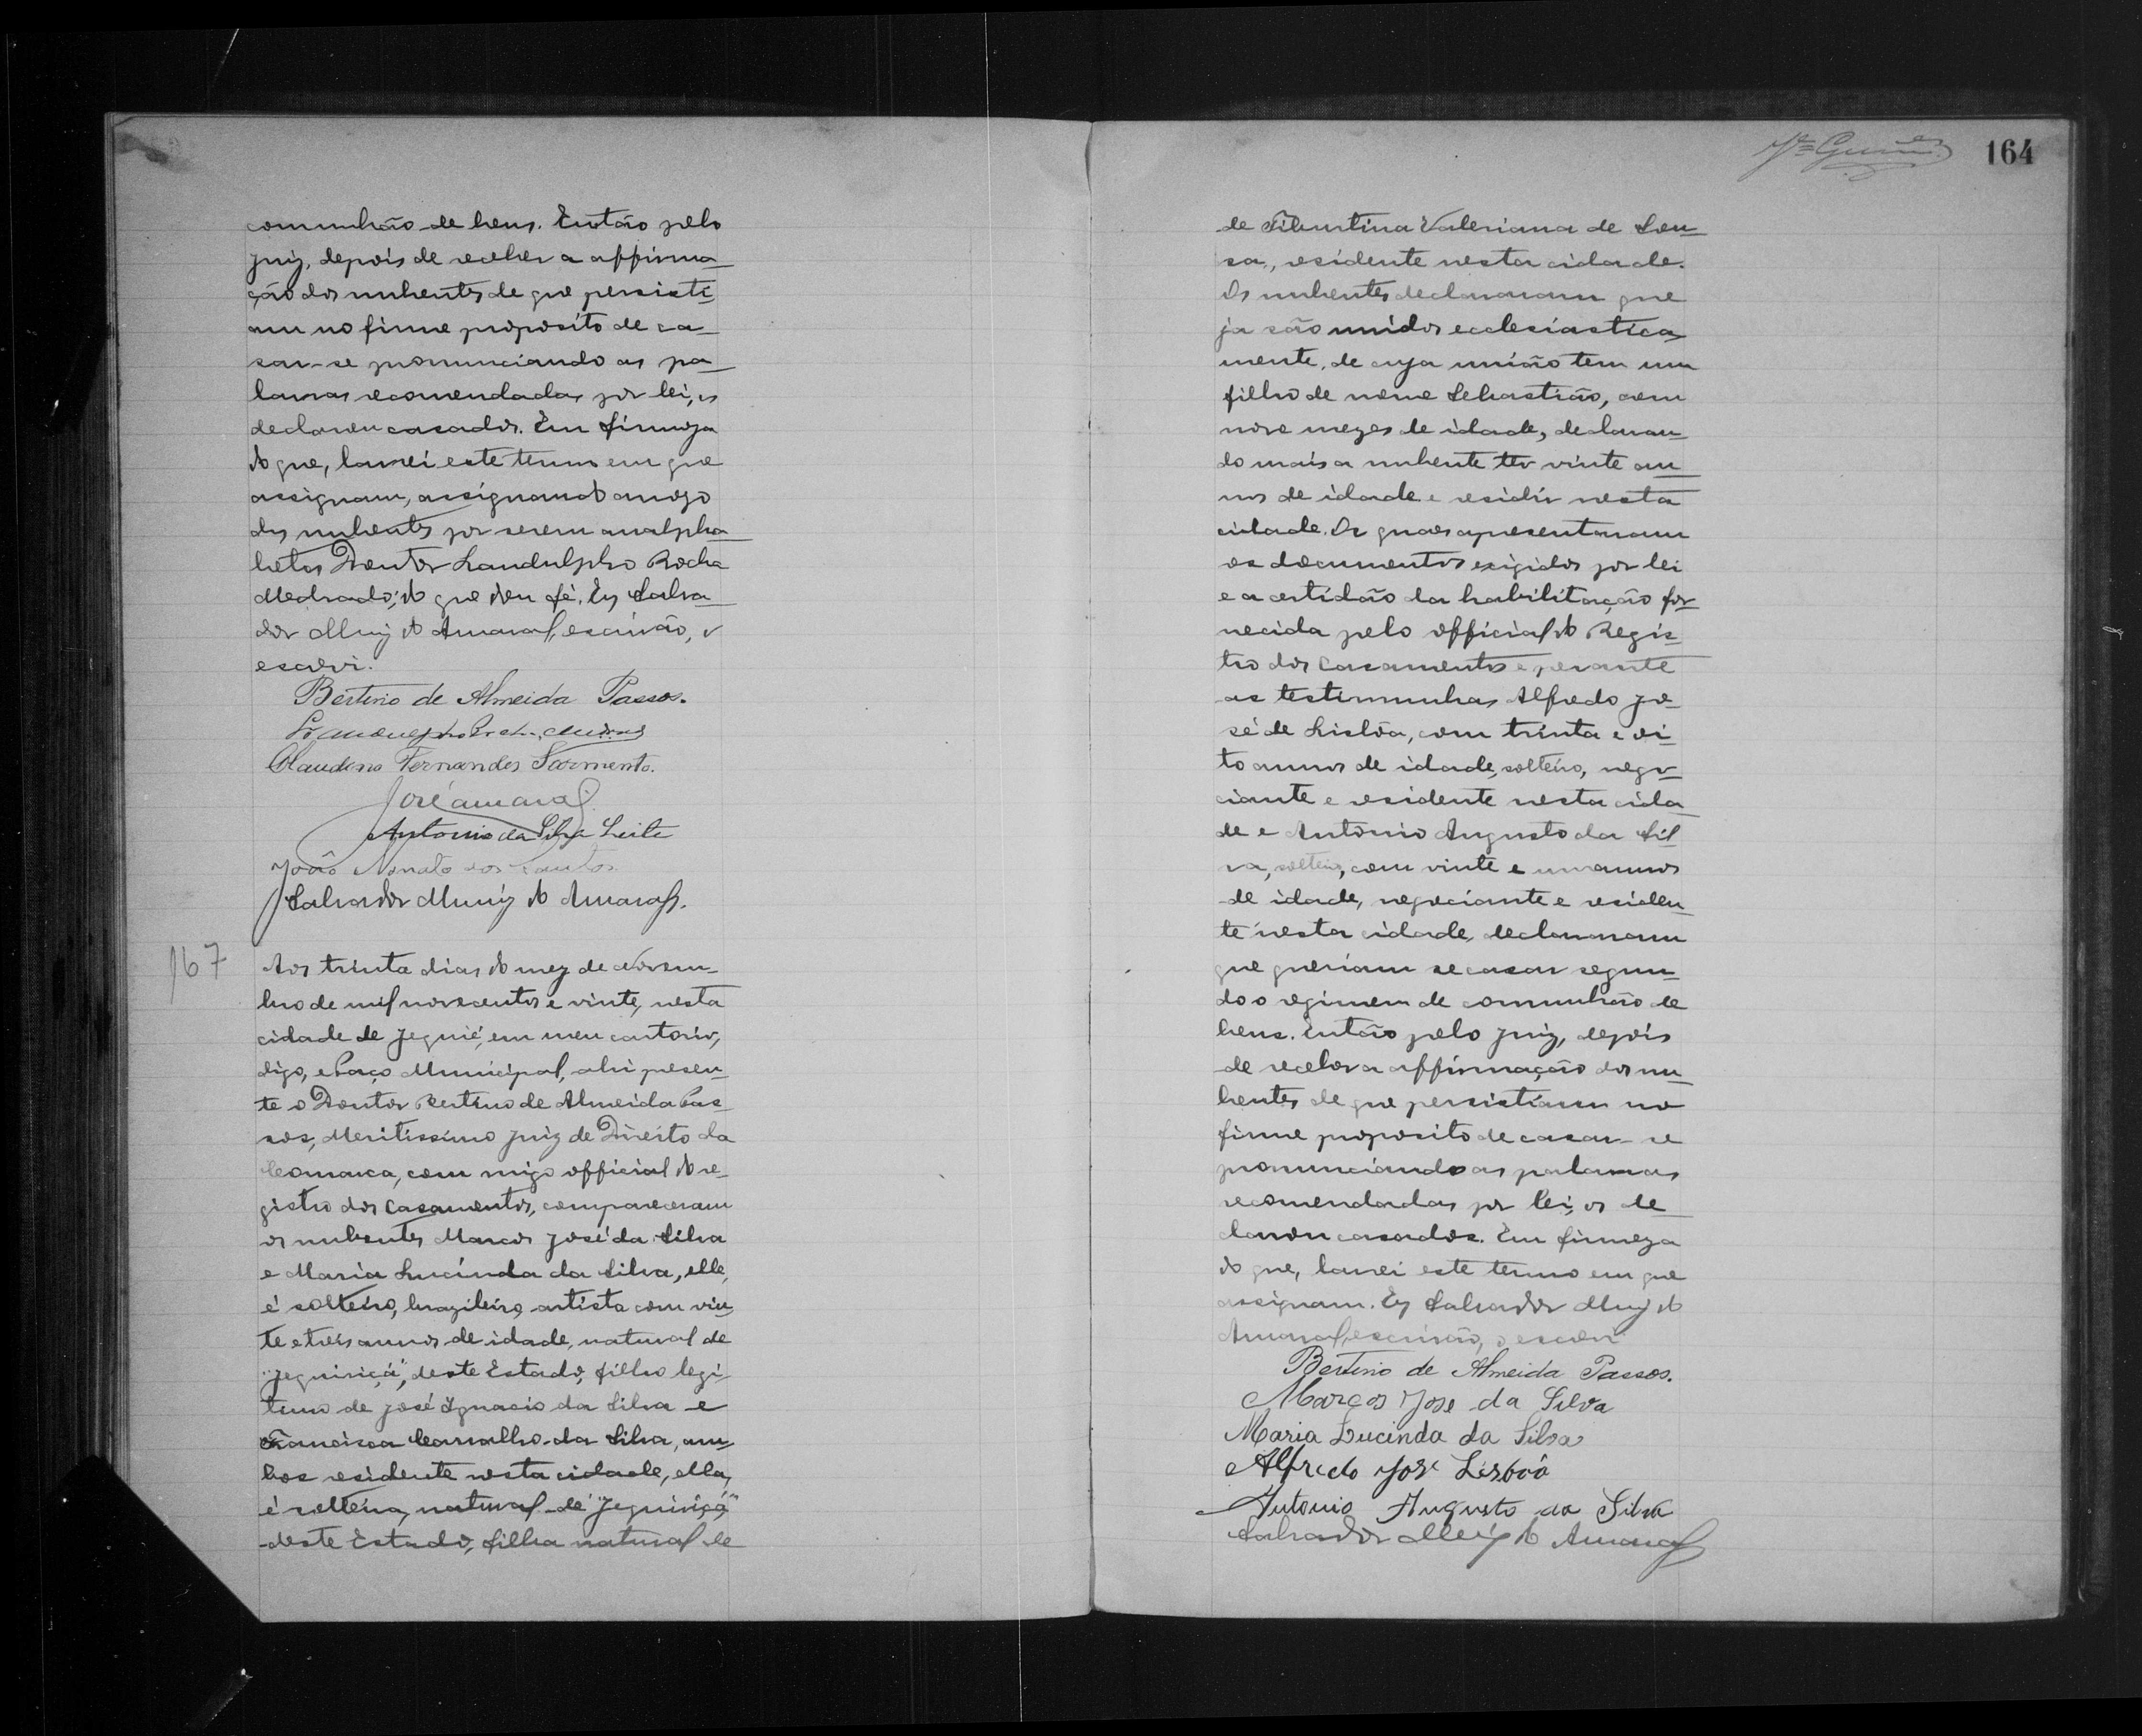 communhão de bens. Então pelo
juiz, depois de receber a affirma-
ção dos nubentes de que persisti-
am no firme proposito de ca-
sar-se pronunciando as pa-
lavras recomendadas por lei, os
declarou casados. Em firmeza
do que, lavrei este termo em que
assignam, assignando a rogo
dos nubentes por serem analpha-
betos Doutor Landulpho Rocha
Medrado; do que dou fé. Eu Salva-
dor Muniz do Amaral, escrivão, o
escrevi.
Bertino de Almeida Passos.
Claudino Fernandes Sarmento.
José Amaral
Antonio da Silva Leite
João Nonato dos Santos
Salvador Muniz do Amaral.
167
Aos trinta dias do mez de Novem-
bro de mil novecentos e vinte, nesta
cidade de Jequié, em meu cartorio,
digo, e Paço Municipal, ahi presen-
te o Doutor Bertino de Almeida Pas-
sos, Meritissimo Juiz de Direito da
Comarca, com migo official do re-
gistro dos casamentos, compareceram
os nubentes Marcos José da Silva
e Maria Lucinda da Silva, elle,
é solteiro, brazileiro, artista com vin-
te e tres annos de idade, natural de
"Jequiriçá", deste Estado, filho legi-
timo de José Ignacio da Silva e
Francisca Carvalho da Silva, am-
bos residente nesta cidade, ella,
é solteira, natural de "Jequiriçá"
deste Estado, filha natural de
164
de Tiburtina Valeriana de Sou-
sa, residente nesta cidade.
Os nubentes declararam que
ja são unidos ecclesiastica-
mente, de cuja união tem um
filho de nome Sebastião, com
nove mezes de idade, declaran-
do mais a nubente ter vinte an-
nos de idade e residir nesta
cidade. Os quaes apresentaram
os documentos exigidos por lei
e a certidão da habilitação for-
necida pelo official do Regis-
tro dos Casamentos e perante
as testimunhas Alfredo Jo-
sé de Lisbôa, com trinta e oi-
to annos de idade, solteiro, nego-
ciante e residente nesta cida-
de e Antonio Augusto da Sil-
va, solteiro, com vinte e um annos
de idade, negociante e residen-
te nesta cidade, declararam
que queriam se casar segun-
do o regimem de communhão de
bens. Então pelo juiz, depois
de receber a affirmação dos nu-
bentes de que persistiam no
firme proposito de casar-se
pronunciando as palavras
recomendadas por lei, os de-
clarou casados. Em firmeza
do que, lavrei este termo em que
assignam. Eu Salvador Muniz do
Amaral, escrivão, o escrevi
Bertino de Almeida Passos.
Marcos Jose da Silva
Maria Lucinda da Silva
Alfredo José Lisbôa
Antonio Augusto da Silva
Salvador Muniz do Amaral